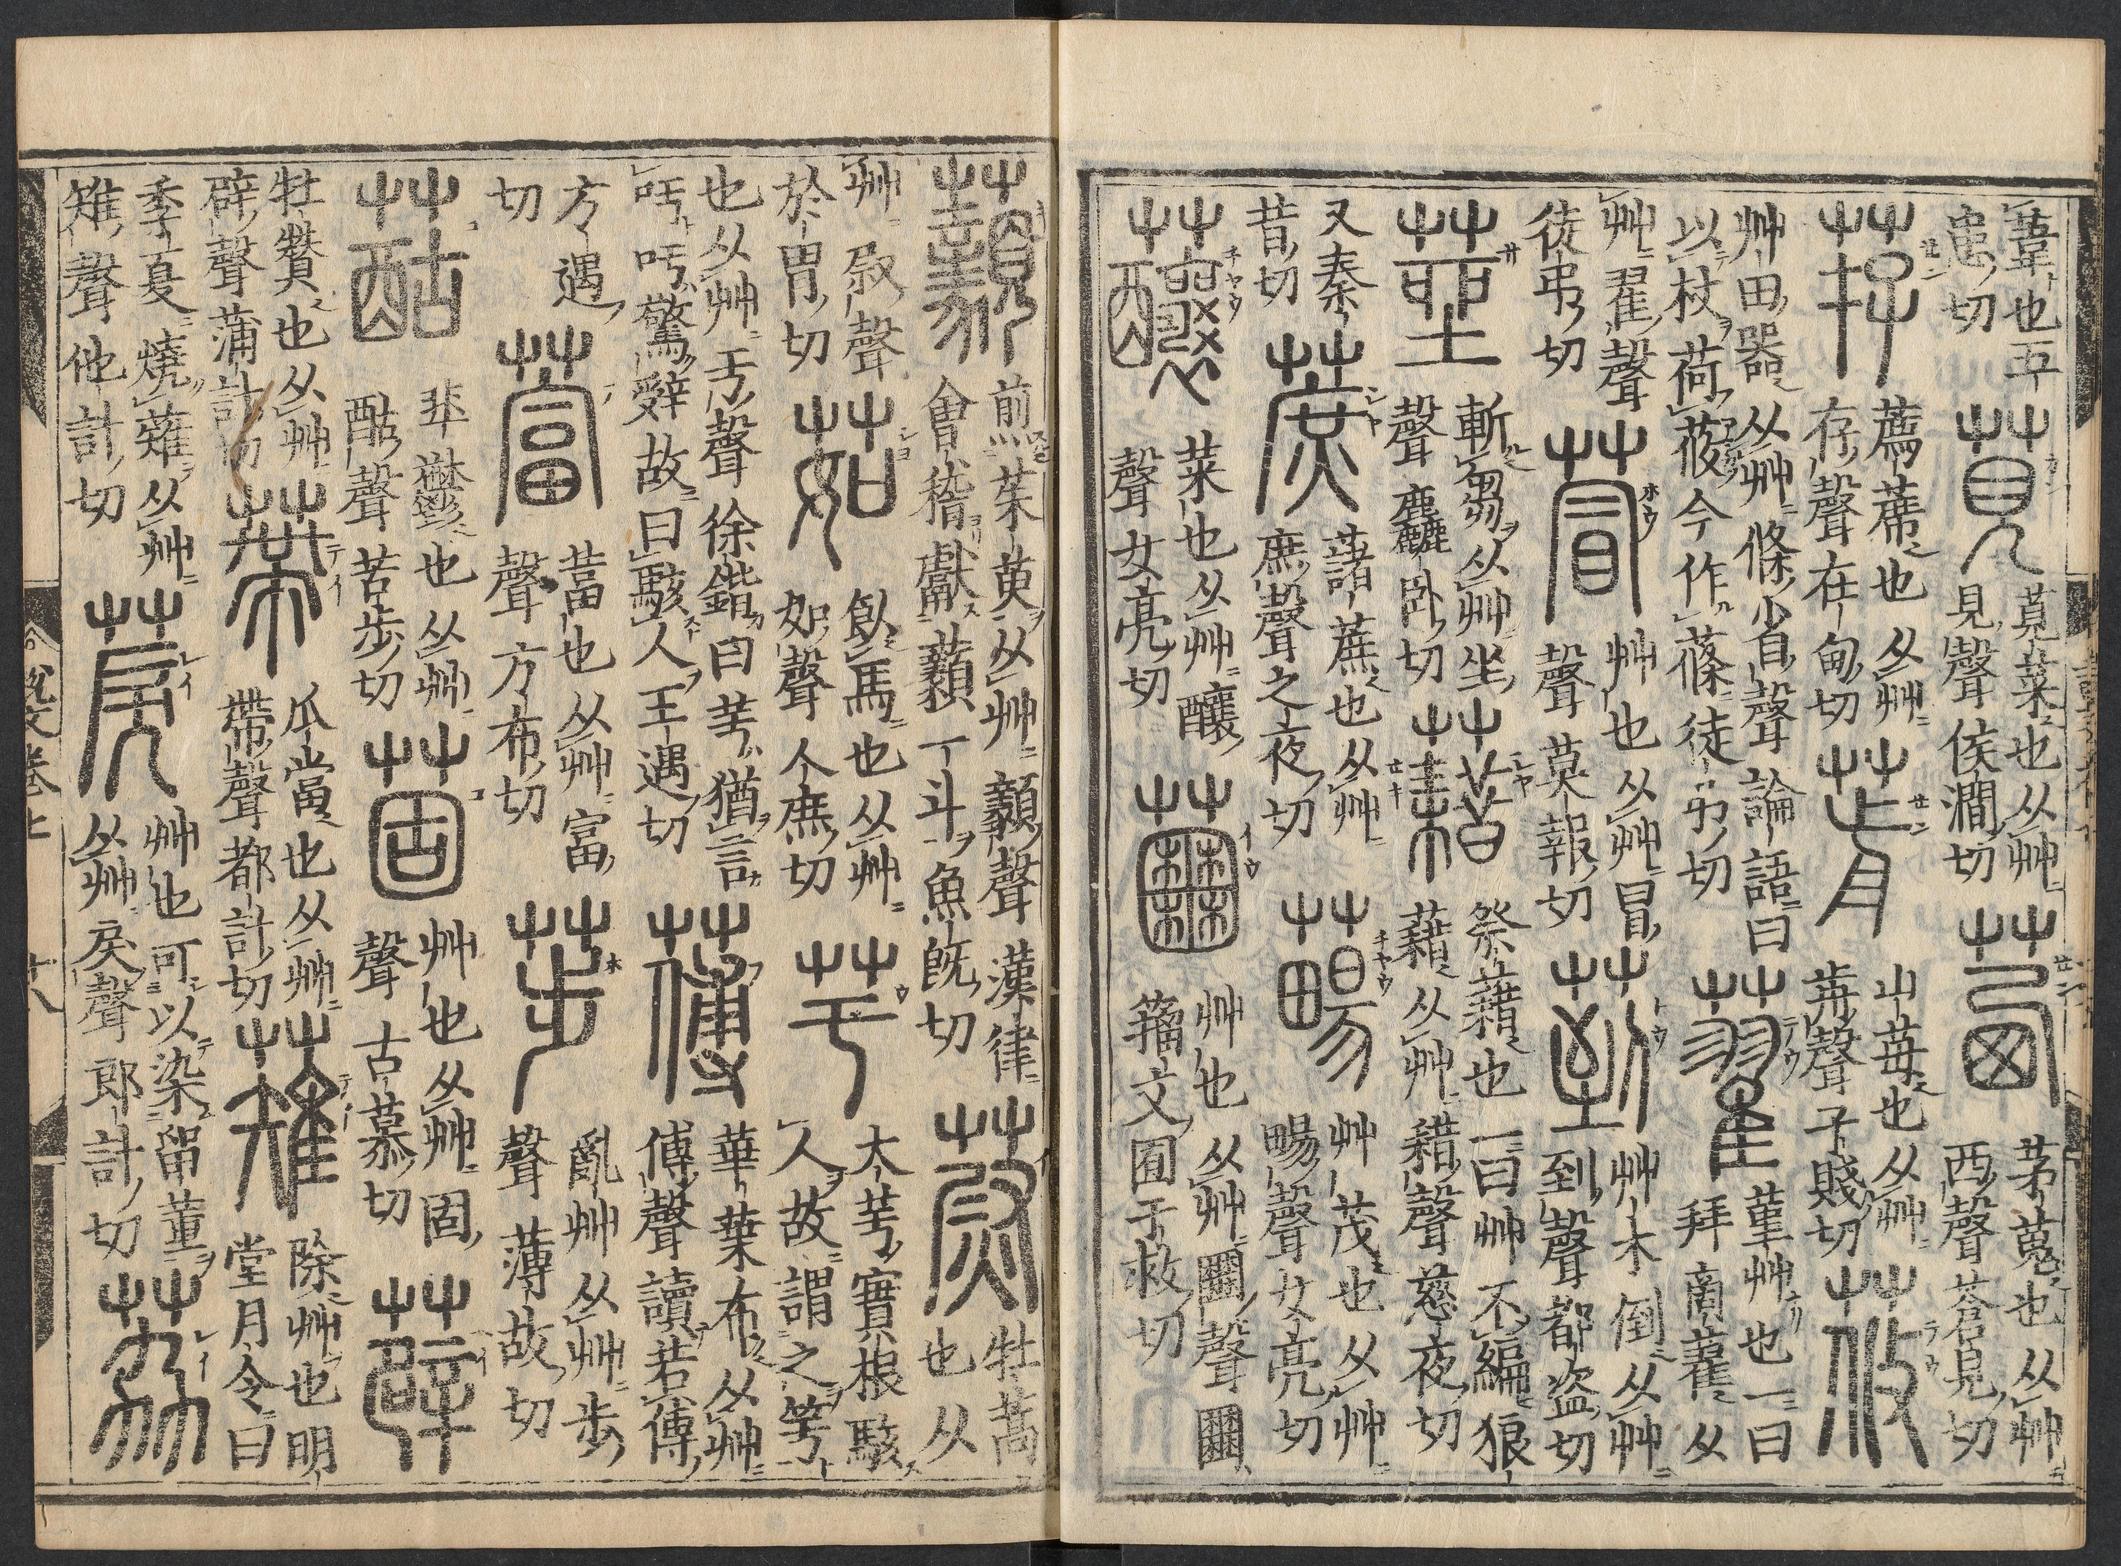 葦也五患切 莧 莧菜也从艸見聲侯澗切 茜 茅蒐也从艸西聲蒼見切
荐 薦蓆也从艸存聲在甸切 葥 山莓也从艸歬聲子賤切 莜
艸田器从艸條省聲論語曰以杖荷莜今作蓧徒弔切 藋 堇艸也一曰拜商藋从
艸翟聲徒弔切 萺 艸也从艸冒聲莫報切 菿 艸木倒从艸到聲都盜切
莝 斬芻从艸坐聲麤臥切 藉 祭藉也一曰艸不編狼藉从艸耤聲慈夜切
又秦昔切 蔗 藷蔗也从艸庶聲之夜切 艸茂也从艸畼聲女亮切
菜也从艸釀聲女亮切 艸也从艸聲籒文囿于救切
藙 煎茱萸从艸顡聲漢律會稽獻藙一斗魚既切 蔚 牡蒿也从
艸尉聲於胃切 茹 飲馬也从艸如聲人庶切 芌 大芌實根駭人故謂之芌
也从艸亏聲徐鍇曰芌猶言吁吁驚辭故曰駭人王遇切 華葉布从艸傅聲讀若傅
方遇切 葍也从艸富聲方布切 荹 亂艸从艸步聲薄故切
韭鬱也从艸酤聲苦步切 䓢 艸也从艸固聲古慕切 薜
牡贊也从艸辟聲蒲計切 蔕 瓜當也从艸帶聲都計切 薙 除艸也明堂月令曰
季夏燒薙从艸雉聲他計切 䓞 艸也可以染留黃从艸戾聲郎計切 荔
說文卷上 十八